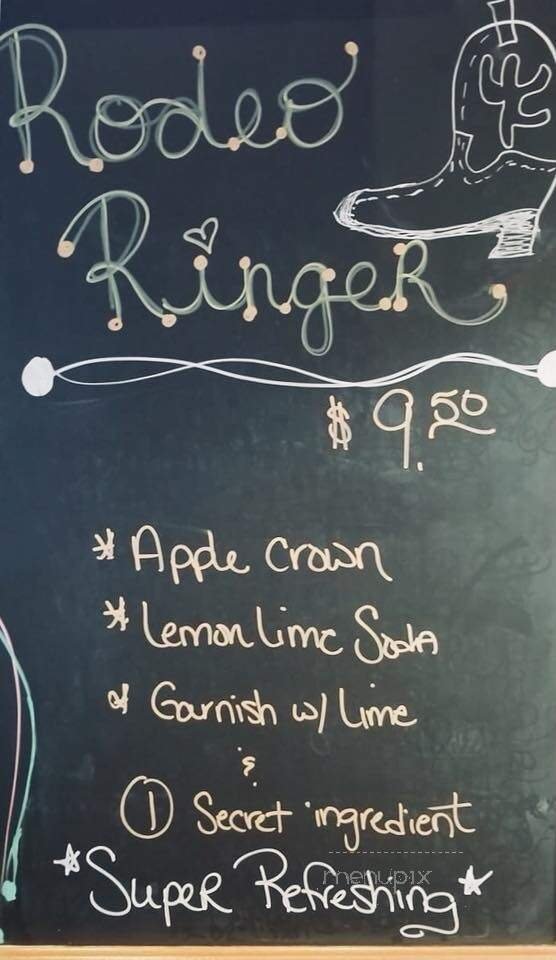 Rodeo
Ringer
$ 9.50
* Apple Crown
* Lemon Lime Soda
* Garnish w/ Lime
&
① Secret ingredient
menupix
*Super Refreshing*